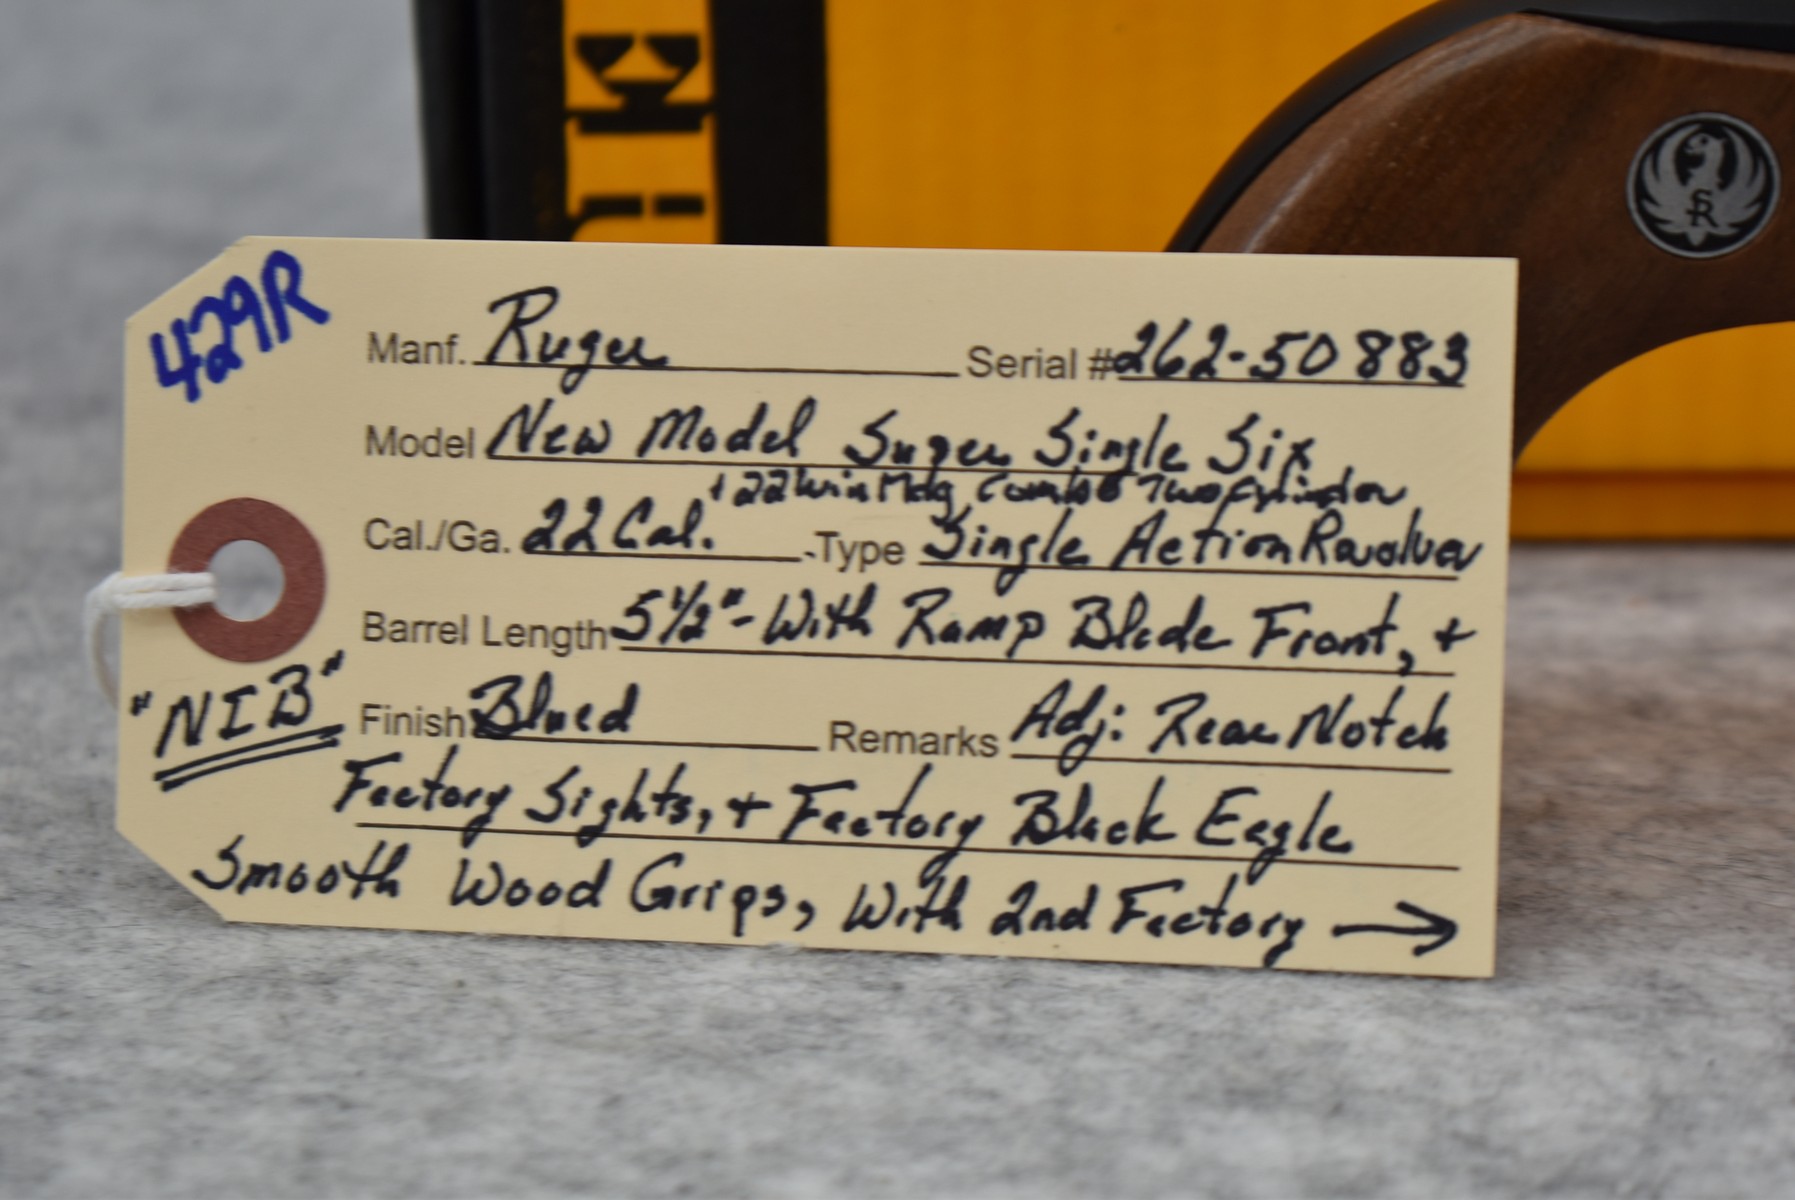 429R
Manf. Ruger Serial # 262-50883
Model New Model Super Single Six
+ 22 Win Mag Combo Two Cylinder
Cal./Ga. 22 Cal. Type Single Action Revolver
Barrel Length 5 1/2" - With Ramp Blade Front, +
"NIB"
Finish Blued Remarks Adj: Rear Notch
Factory Sights, + Factory Black Eagle
Smooth Wood Grips, With 2nd Factory →